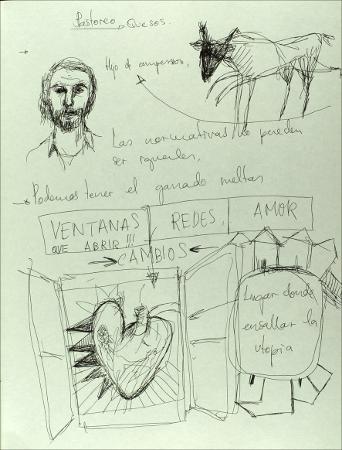 Pastoreo, Quesos.
Hijo de campesinos,
Las normativas no pueden
ser iguales,
Podemos tener el ganado
VENTANAS
QUE ABRIR!!!
REDES,
AMOR
CAMBIOS
Lugar donde
ensallar la
utopia